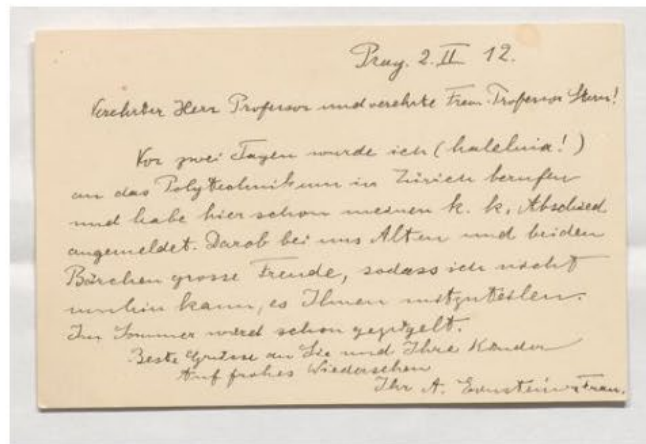 Prag. 2. II 12.
Verehrter Herr Professor und verehrte Frau Professor Stern!
Vor zwei Tagen wurde ich (haleluia!)
an das Polytechnikum in Zürich berufen
und habe hier schon meinen k. k. Abschied
angemeldet. Darob bei uns Alten und beiden
Bärchen grosse Freude, sodass ich nicht
umhin kann, es Ihnen mitzuteilen.
Im Sommer wird schon gegigelt.
Beste Grüsse an Sie und Ihre Kinder
Auf frohes Wiedersehen
Ihr A. Einstein Frau.